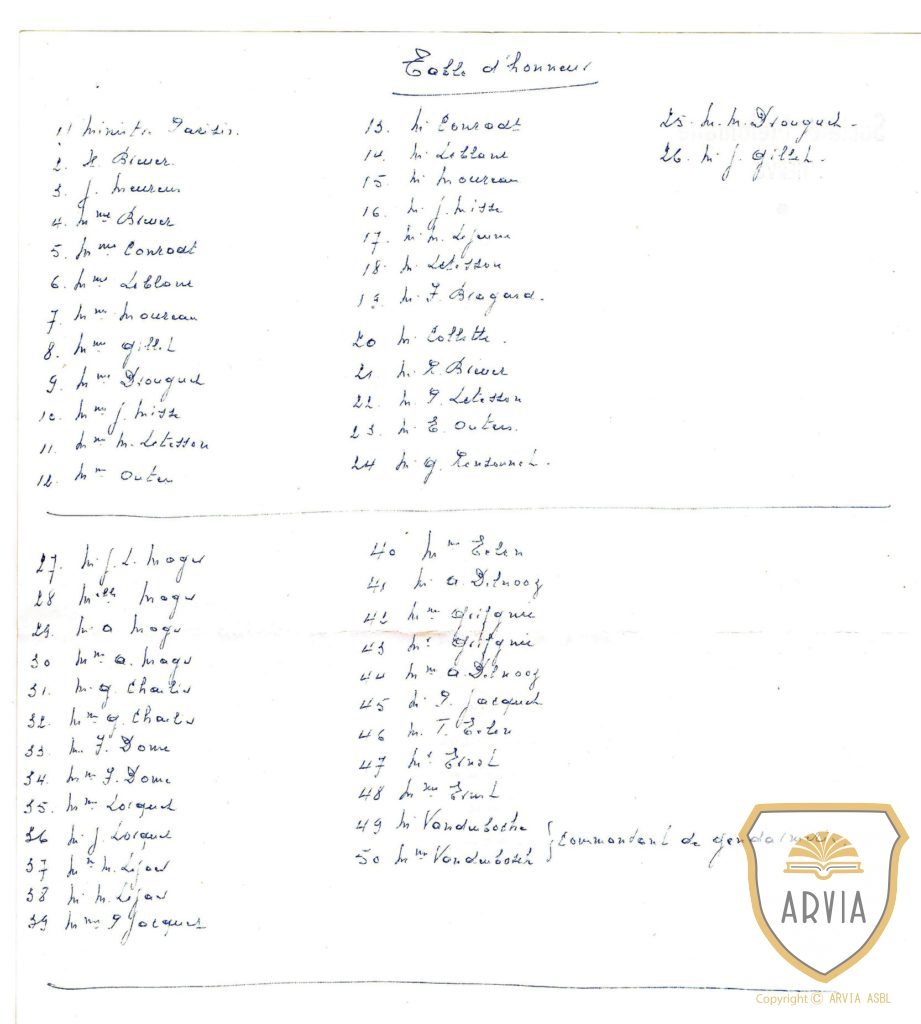 Table d'honneur
1) Ministre Parisis.
2. H. Biewer.
3. J. Meureau
4. Mme Biewer
5. Mme Conrodt
6. Mme Leblanc
7. Mme Moureau
8. Mme Gillet
9. Mme Drouguet
10. Mme J. Misse
11. Mme M. Letesson
12. Mme Outers
13. M Conrodt
14. M. Leblanc
15. M Moureau
16. M. J. Misse
17. M. M. Lejeune
18. M. Letesson
19. M. F. Bragard.
20 M. Collette.
21. M. E. Biewer
22. M. P. Letesson
23. M. E. Outers.
24 M. G. Pensonnet.
25. M. M. Drouguet.
26. M J. Gillet.
27. M. J. L. Mager
28 Melle Mager
29. M. A Mager
30 Mme A. Mager
31. M. G. Charlier
32. Mme G. Charlier
33. M. F. Dome
34. Mme F. Dome
35. Mme Locquet
36 M. J. Locquet
37 Mme M. Lejar
38 M M. Lejar
39 Mme P Jacques
40 Mme Eelen
41 M. A. Delnooz
42 Mme Grifgnée
43 Mr Grifgnée
44 Mme A Delnooz
45 M. P. Jacquet
46 M. T. Eelen
47 Mr Ernst
48 Mme Ernst
49 M Vanderbosche
50 Mme Vanderbosch } Commandant de gendarmerie.
ARVIA
Copyright © ARVIA ASBL